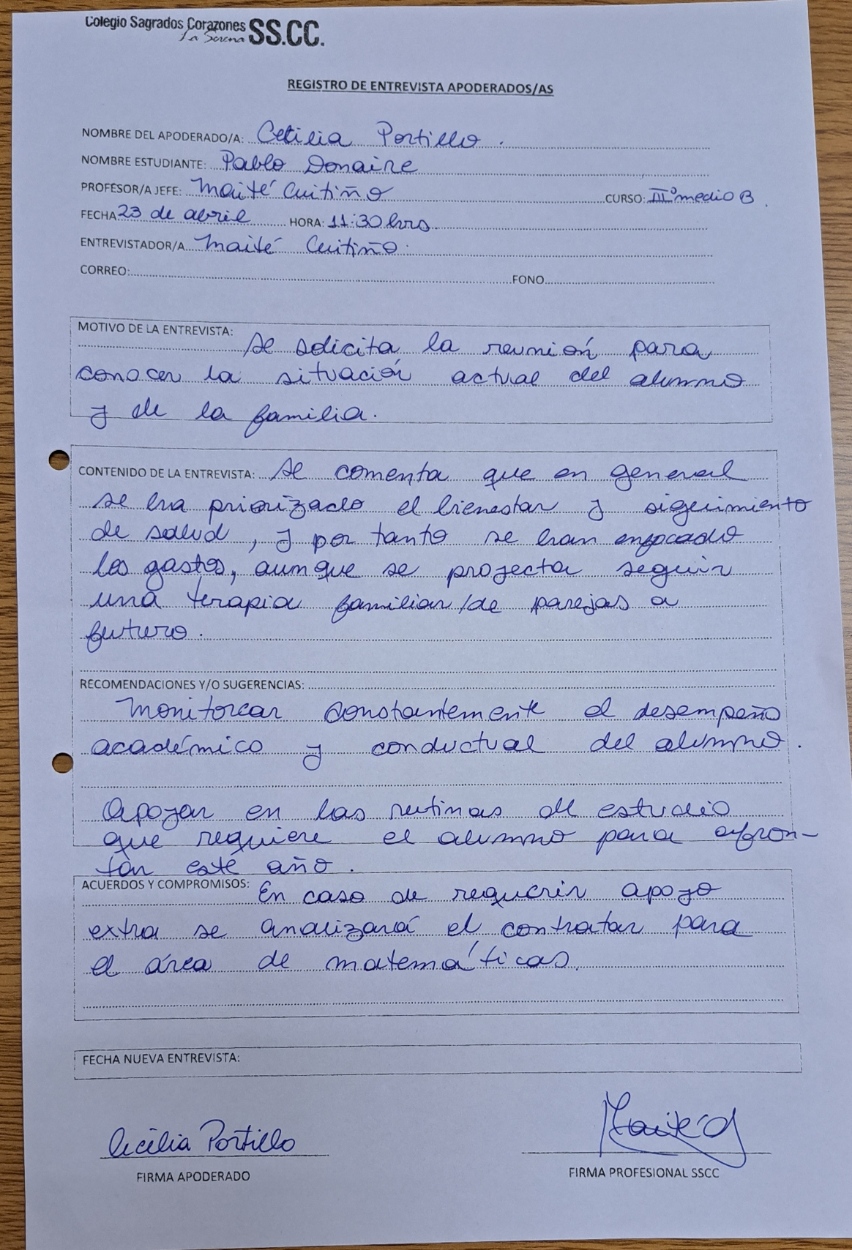 Colegio Sagrados Corazones SS.CC.
La Serena
REGISTRO DE ENTREVISTA APODERADOS/AS
NOMBRE DEL APODERADO/A: Cecilia Portillo.
NOMBRE ESTUDIANTE: Pablo Donaire
PROFESOR/A JEFE: Maité Cuitiño CURSO: IIIº medio B.
FECHA 23 de abril HORA: 11:30 hrs
ENTREVISTADOR/A Maité Cuitiño.
CORREO: FONO
MOTIVO DE LA ENTREVISTA:
Se solicita la reunión para
conocer la situación actual del alumno
y de la familia.
CONTENIDO DE LA ENTREVISTA: Se comenta que en general
se ha priorizado el bienestar y siguimiento
de salud, y por tanto se han enfocado
los gastos, aunque se proyecta seguir
una terapia familiar/de parejas a
futuro.
RECOMENDACIONES Y/O SUGERENCIAS:
Monitorear constantemente el desempeño
académico y conductual del alumno.
Apoyar en las rutinas de estudio
que requiere el alumno para afron-
tar esté año.
ACUERDOS Y COMPROMISOS: En caso de requerir apoyo
extra se analizará el contratar para
el área de matemáticas.
FECHA NUEVA ENTREVISTA:
Cecilia Portillo
FIRMA APODERADO
FIRMA PROFESIONAL SSCC